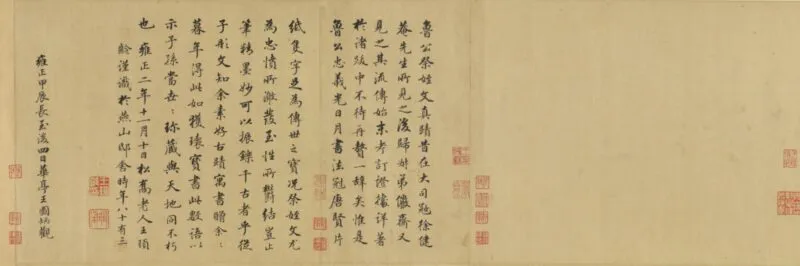 魯公祭姪文真蹟昔在大司寇徐健
菴先生所見之後歸舍弟儼齋又
見之其流傳始末考訂證據詳著
於諸跋中不待再贅一辭矣惟是
魯公忠義光日月書法冠唐賢片
紙隻字足為傳世之寶況祭姪文尤
為忠憤所激發至性所鬱結豈止
筆精墨妙可以振鑠千古者乎從
子彤文知余素好古蹟寓書贈余〻
暮年得此如獲瓌寶書此數語以
示子孫當世〻珍藏與天地同不朽
也 雍正二年十一月十日松喬老人王頊
齡謹識於燕山邸舍時年八十有三
雍正甲辰長至後四日華亭王圖炳觀